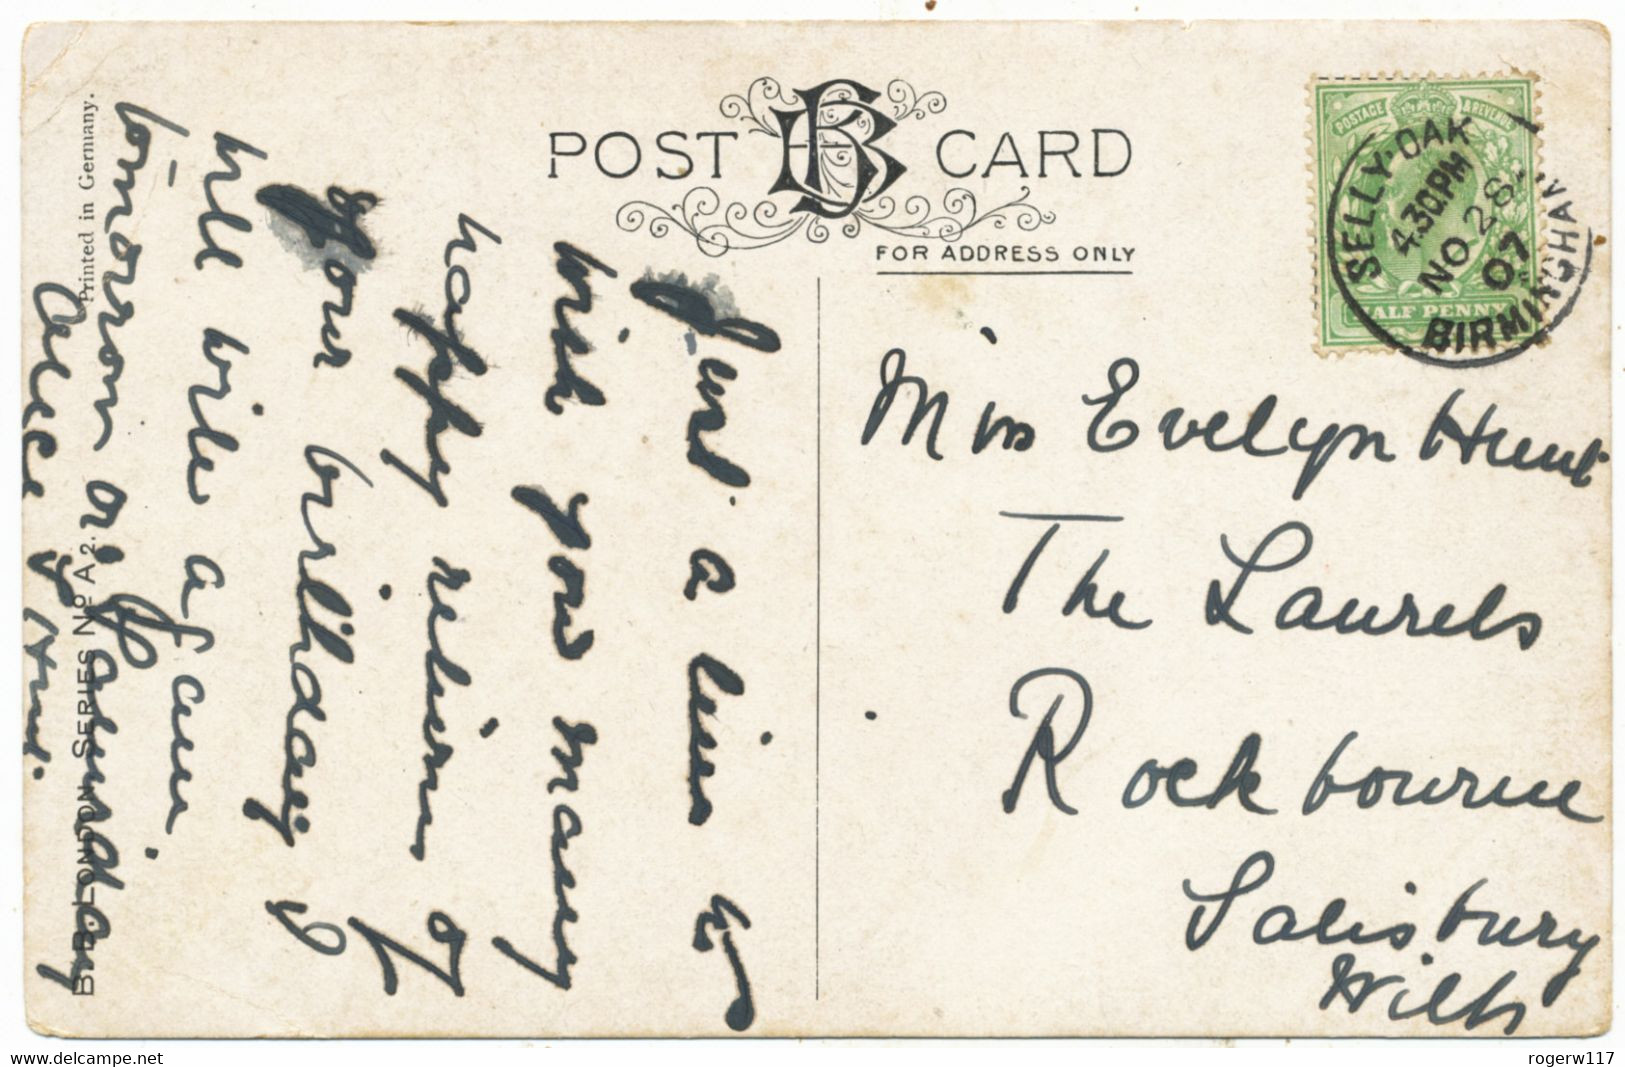 POST CARD
FOR ADDRESS ONLY
POSTAGE & REVENUE
HALF PENNY
SELLY·OAK
4.30PM
NO 28
07
BIRMINGHAM
Miss Evelyn Hunt
The Laurels
Rockbourne
Salisbury
Wilts
Just a line to
wish you many
happy return of
your birthday I
will write a few
tomorrow or Saturday
Alice Hunt.
Printed in Germany.
B.B. LONDON SERIES No A2.
www.delcampe.net
rogerw117